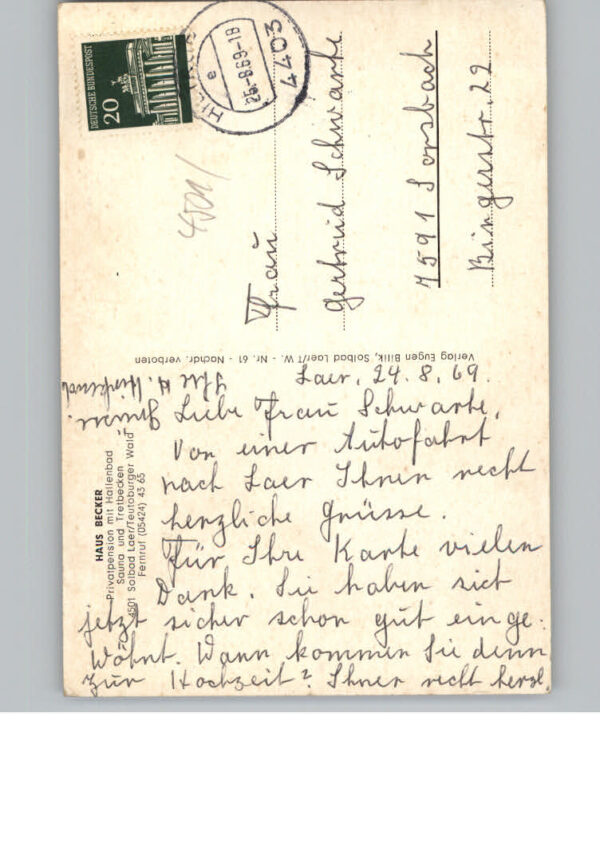 DEUTSCHE BUNDESPOST
20
25.-8.69-18
e
4403
4501/
Frau
Gertrud Schwarte
7591 Sarsbach
Bingerstr. 22
Verlag Eugen Bilik, Solbad Laer/T.W. - Nr. 61 - Nachdr. verboten
HAUS BECKER
Privatpension mit Hallenbad
Sauna und Tretbecken
4501 Solbad Laer/Teutoburger Wald
Fernruf (05424) 43 65
Laer, 24.8.69.
Liebe Frau Schwarte,
Von einer Autofahrt
nach Laer Ihnen recht
herzliche Grüsse.
Für Ihre Karte vielen
Dank. Sie haben sich
jetzt sicher schon gut einge-
wöhnt. Wann kommen Sie denn
zur Hochzeit? Ihnen recht herzl.
Grüsse.
Ihre H.